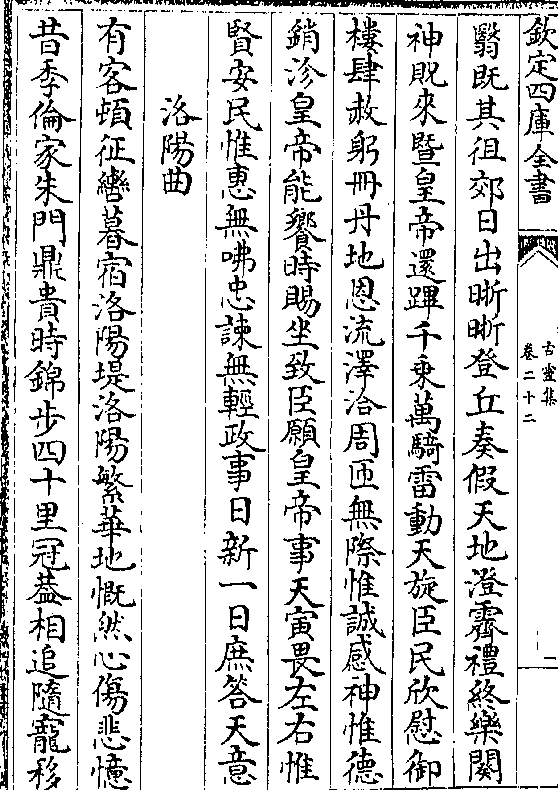 欽定四庫全書
古靈集
卷二十二
翳既其徂郊日出晣晣登丘奏假天地澄霽禮終樂闋
神貺來暨皇帝還蹕千乘萬騎雷動天旋臣民欣慰御
樓肆赦躬冊丹地恩流澤洽周匝無際惟誠感神惟德
銷沴皇帝能饗時賜坐致臣願皇帝事天寅畏左右惟
賢安民惟惠無咈忠諫無輕政事日新一日庶答天意
洛陽曲
有客頓征轡暮宿洛陽堤洛陽繁華地慨然心傷悲憶
昔季倫家朱門鼎貴時錦步四十里冠葢相追隨寵移